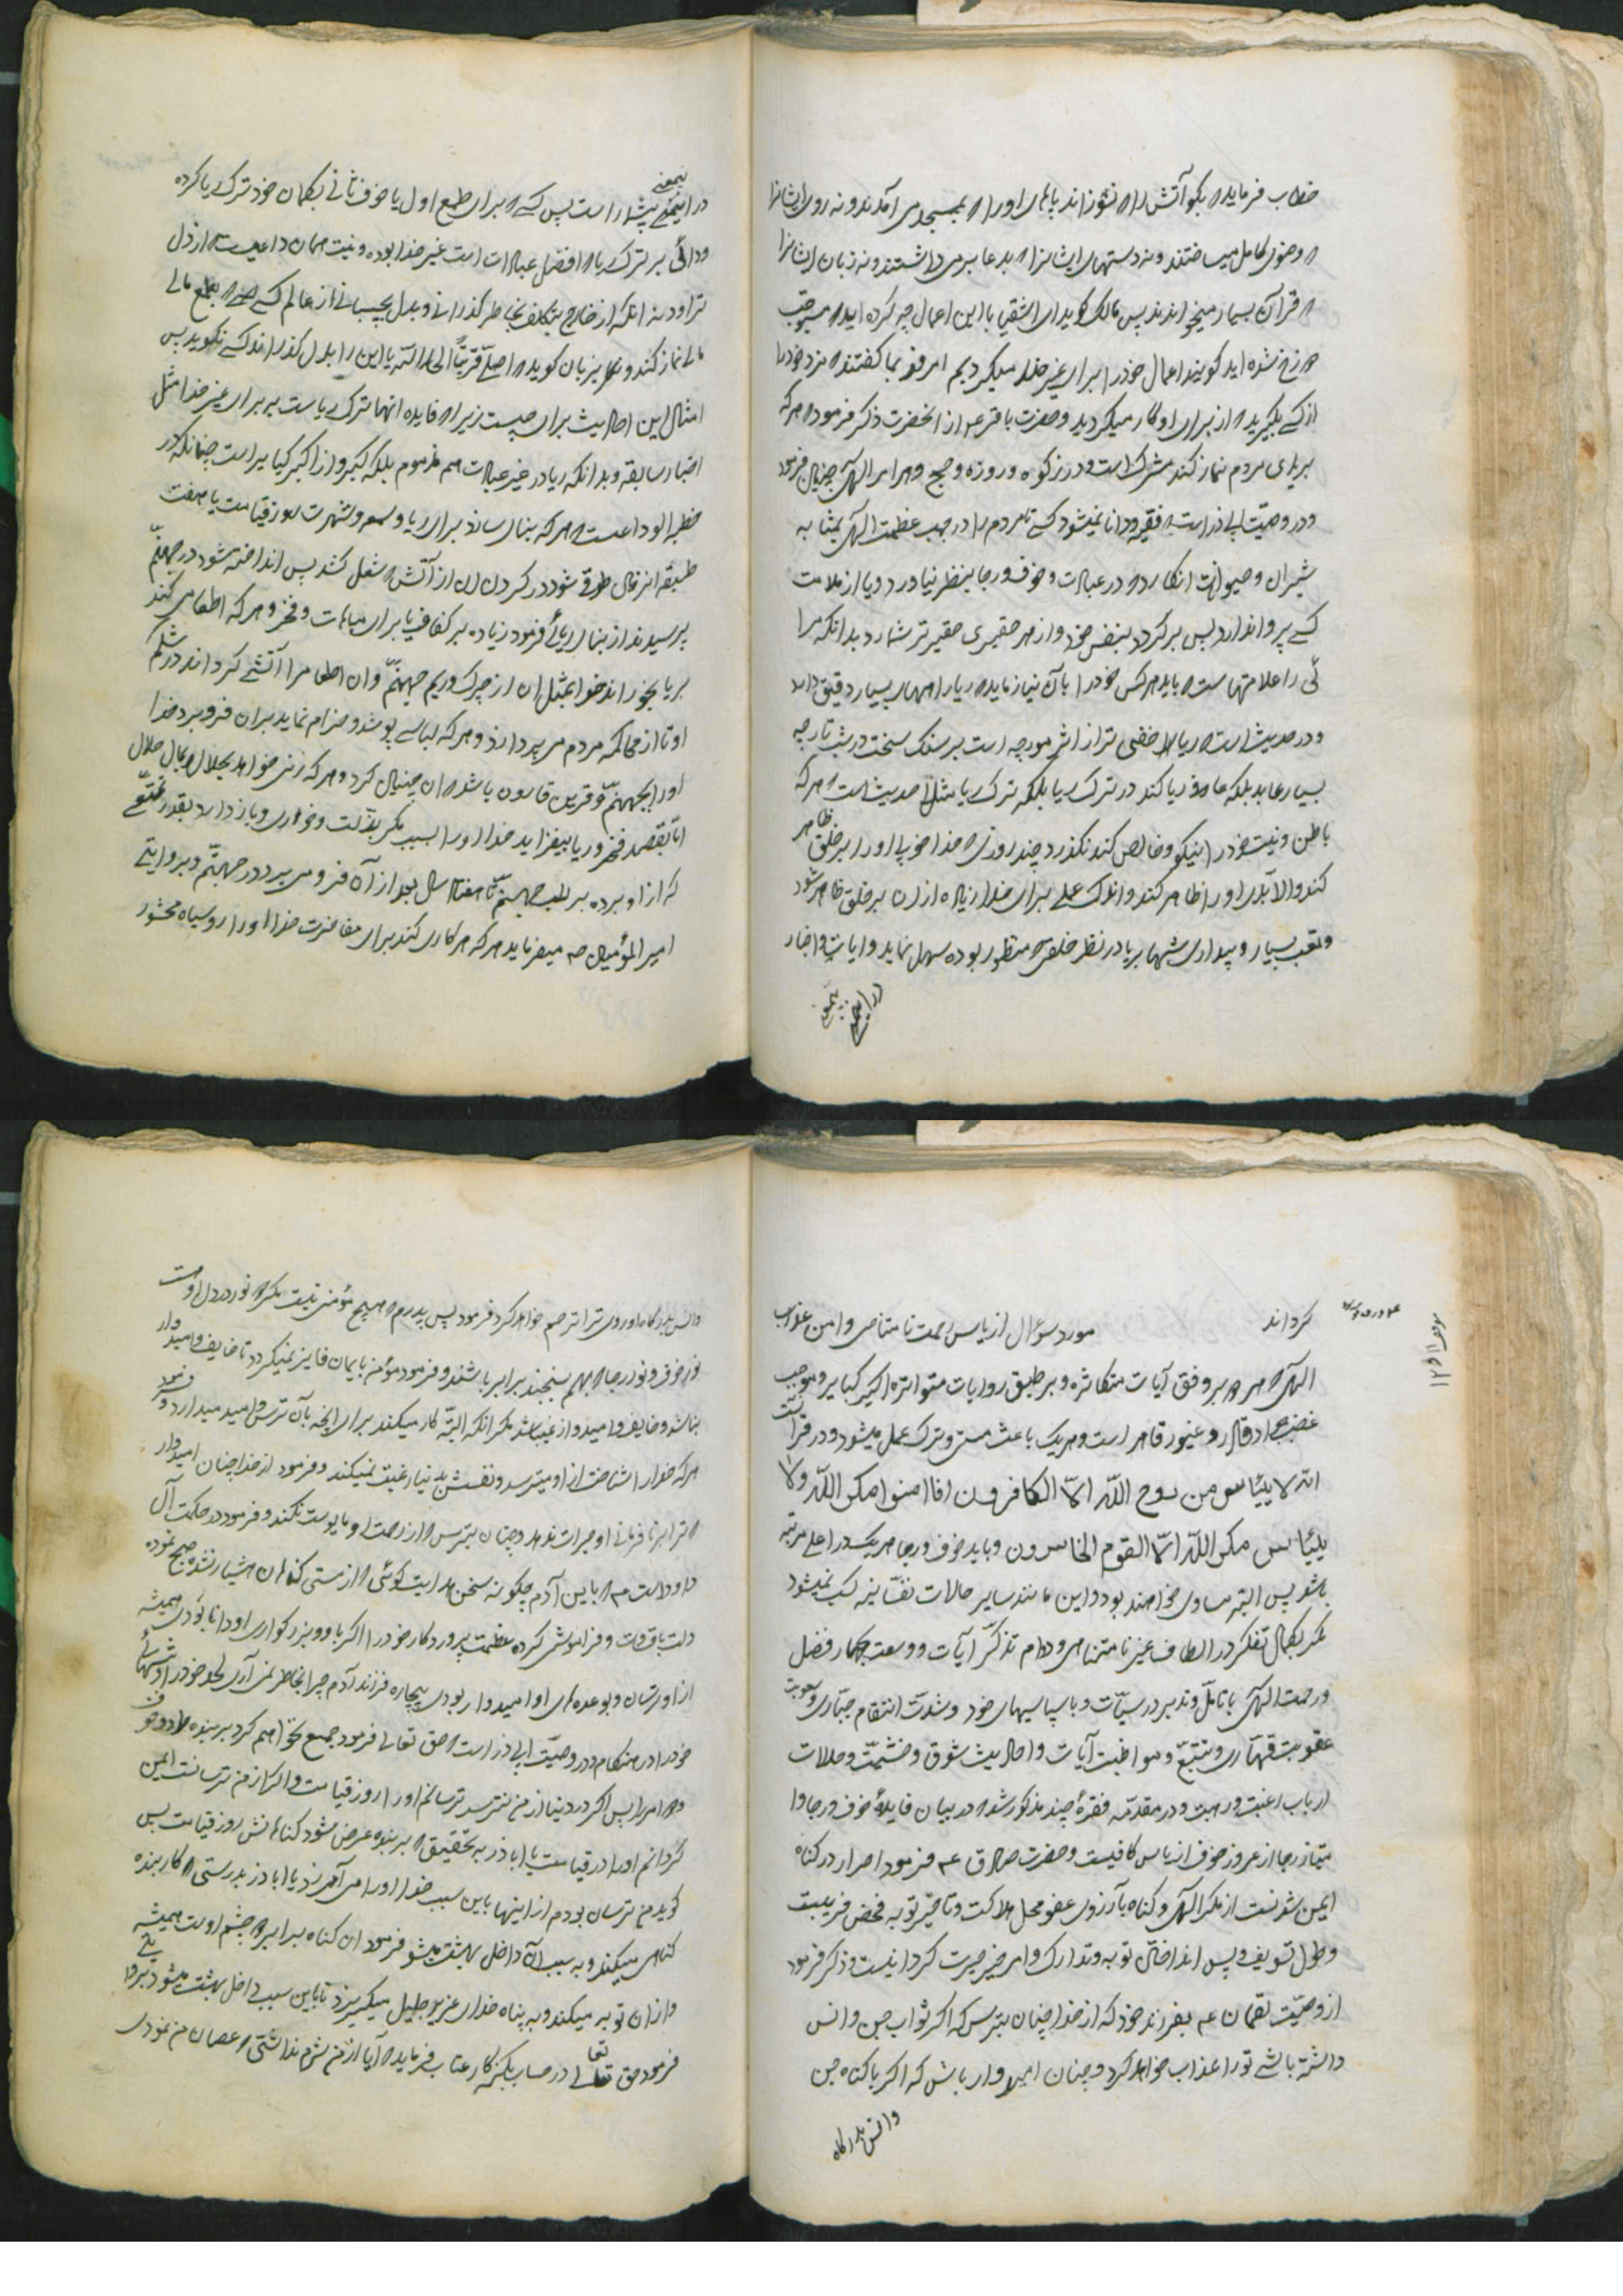 خطاب فرماید که بگو آتش را که نسوزاند پاهای او را که بمسجد می آمدند و نه روی ایشانرا
که وضوی کامل میساختند و نه دستهای ایشانرا که بدعا بر می داشتند و نه زبان ایشانرا
که قرآن بسیار میخواندند پس مالک گوید ای اشقیا با این اعمال چه کرده اید که مستوجب
دوزخ شده اید گویند اعمال خود را برای غیر خدا میکردیم امروز بما گفتند که مزد خود را
از کسی بگیرید که از برای او کار میکردید و حضرت باقر ع از آنحضرت ذکر فرمود که هر که
بریای مردم نماز کند مشرک است و در زکوة و روزه و حج و هر امر الهی چنان فرمود
و در وصیت ابی ذر است که فقیه و دانا نمیشود کسی تا مردم را در جنب عظمت الهی بمثابه
شتران و حیوانات انگارد که در عبادت و خوف و رجا بنظر نیاورد و یا از ملامت
کسی پروا ندارد پس برگردد بنفس خود و از هر حقیری حقیرتر شمارد بدانکه مرا
ئی را علامتهاست که باید هر کس خود را بآن بیازماید که ریا را مهمهای بسیار دقیق دارد
و در حدیث است که ریا خفی تر از اثر مورچه است بر سنگ سخت در شب تار چه
بسیار عابد بلکه عارف ریا کند در ترک ریا بلکه ترک ریا مثل حدیث است که هر که
باطن و نیت خود را نیکو و خالص کند نگذرد چند روزی که خدا خوبی او را بر خلق ظاهر
کند والا بدی او را ظاهر کند و اندک عملی برای خدا زیاده از آن بر خلق ظاهر شود
و تعب بسیار و بیداری شبها بریا در نظر خلق منظور بوده سهل نماید و آیات و اخبار
در اینمعنی بیشمار
در اینمعنی بیشمار است پس کسی که برای طمع اول یا خوف ثانی بگمان خود ترک ریا کرده
و دائی بر ترک ریا که افضل عبادات است غیر خدا بوده و نیت همان داعیست که از دل
تراود نه آنکه از خارج بتکلف بخاطر گذرانی و بدل بچسبانی از عالم کسی که بطمع مالی
نماز کند و بزبان گوید که اصلی قربة الی الله یا این را بدل گذراند کسی نگوید پس
امثال این احادیث برای چیست زیرا که فایده آنها ترک ریاست برای غیر خدا مثل
اخبار سابقه و بدانکه ریا در غیر عبادت هم مذموم بلکه کبیره و از اکبر کبایر است چنانکه در
خطبه الوداعست که هر که بنائی سازد برای ریا و سمعه و شهرت روز قیامت با هفت
طبقه از خاک طوقی شود در گردن او از آتش که مشتعل کشد پس انداخته شود در جهنم
پرسیدند از بنای ریائی فرمود زیاده بر کفاف یا برای مباهات و فخر و هر که اطعامی کند
بریا بخوراند خدا بمثل آن از چرک و ریم جهنم و آن اطعام را آتشی گرداند در شکم
او تا از محاکمه مردم می پردازد و هر که لباسی پوشد و خرام نماید بر آن فرو برد خدا
او را بجهنم و قرین قارون باشد که آن چنان کرد و هر که زنی خواهد بحلال و بمال حلال
اما بقصد فخر و ریا بیفزاید خدا او را بسبب مگر بذلت و خواری و باز دارد بقدر تمتعی
که از او برده بر لب جهنم تا هفتاد سال بعد از آن فرو می برد در جهنم و بروایتی
امیر المؤمنین ص میفرماید هر که هر کاری کند برای مفاخرت خدا او را روسیاه محشور
گرداند
مورد سؤال از یاس رحمت نامتناهی و امن عذاب
الهی که هر دو بر وفق آیات متکاثره و بر طبق روایات متواتره اکبر کبایر و موجب
غضب جواد قهار و غیور قاهر است و هر یک باعث سستی و ترک عمل میشود و در قرآنست
انه لا ییئاس من روح الله الا الکافرون افا امنوا مکر الله ولا
ییئاس مکر الله الا القوم الخاسرون و باید خوف و رجا هر یک در اعلی مرتبه
باشد پس البته مساوی خواهند بود و این مانند سایر حالات نفسانیه کسب نمیشود
مگر بکمال تفکر در الطاف غیر نامتناهی و دوام تذکر آیات و وسعت بحار فضل
و رحمت الهی با تامل و تدبر در سیئات و باسپاسیهای خود و شدت انتقام جباری و صعوبت
عقوبت قهاری و تتبع و مواظبت آیات و احادیث شوق و خشیت و حالات
ارباب رغبت و رهبت و در مقدمه فقره چند مذکور شد که در بیان فایده خوف و رجا و
تمیز رجا از غرور و خوف از یاس کافیست و حضرت صادق ع فرمود اصرار در گناه
ایمن شدنست از مکر الهی و گناه بآرزوی عفو محل هلاکت و تاخیر توبه محض فریبست
و طول تسویف و پس انداختن توبه و تدارک وادی حیرت گردانیست و ذکر فرمود
از وصیت لقمان ع بفرزند خود که از خدا چنان بترس که اگر ثواب جن و انس
داشته باشی تو را عذاب خواهد کرد و چنان امیدوار باش که اگر با گناه جن
و انس بدرگاه
و انس بدرگاه او روی ترا ترحم خواهد کرد فرمود پس پدرم که هیچ مؤمنی نیست مگر که نور در دل اوست
نور خوف و نور رجا که بهم بسنجند برابر باشند و فرمود مؤمن بایمان فایز نمیگردد تا خایف و امیدوار
نباشد و خایف و امیدوار نمیباشد مگر آنکه البته کار میکند برای آنچه بآن ترس و امید میدارد و فرمود
هر که خدا را شناخت از او میترسد و نفسش بدنیا رغبت نمیکند و فرمود از خدا چنان امیدوار
که ترا بر نافرمانی او جرات ندهد و چنان بترس که از رحمت او مایوست نکند و فرمود در حکمت آل
داود است ع که یابن آدم چگونه سخن هدایت گوئی که از مستی گناهان هشیار نشده صبح نموده
دلت با قساوت و فراموش کرده عظمت پروردگار خود را اگر با او و بزرگواری او دانا بودی همیشه
از او ترسان و بوعده های او امیدوار بودی بیچاره فرزند آدم چرا بخاطر نمی آری لحد خود را و تنهائی
خود را در هنگام و در وصیت ابی ذر است که حق تعالی فرمود جمع نخواهم کرد بر بنده دو خوف
و دو امن را پس اگر در دنیا از من نترسد ترسانم او را روز قیامت و اگر از من ترسانست ایمن
گردانم او را در قیامت یا اباذر به تحقیق که بر بنده عرض شود گناهانش روز قیامت پس
گوید من ترسان بودم از اینها باین سبب خدا او را می آمرزد یا اباذر بدرستی که کار بنده
گناهی میکند و به سبب آن داخل بهشت میشود فرمود آن گناه برابر هر دو چشم اوست همیشه
و از آن توبه میکند و به پناه خدای عزیز جلیل میگریزد تا باین سبب داخل بهشت میشود
فرمود حق تعالی در حساب بگنه کار عتاب فرماید که آیا از من شرم نداشتی که عصیان من نمودی